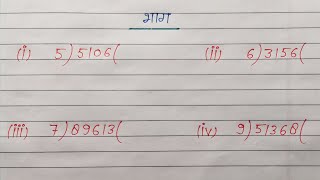 भाग
(i) 5)5106( (ii) 6)3156(
(iii) 7)89613( (iv) 9)51368(